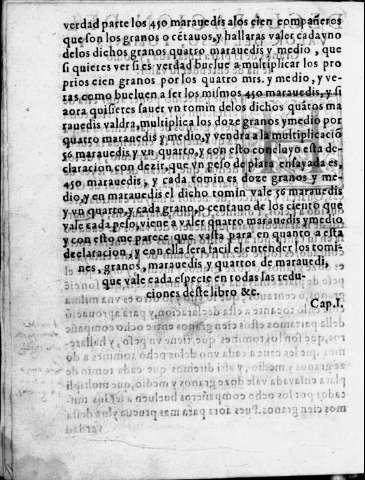 verdad parte los 450 marauedis alos cien compañeros
que son los granos o cẽtauos, y hallaras valer cada vno
delos dichos granos quatro marauedis y medio, que
si quieres ver si es verdad buelue a multiplicar los pro
prios cien granos por los quatro mrs. y medio, y ve-
ras como bueluen a ser los mismos 450 marauedis, y si
aora quisieres sauer vn tomin delos dichos quãtos ma
rauedis valdra, multiplica los doze granos y medio por
quatro marauedis y medio, y vendra a la multiplicaciõ
56 marauedis y vn quarto, y con esto concluyo esta de-
claracion con dezir, que vn peso de plata ensayada es,
450 marauedis, y cada tomin es doze granos y me-
dio, y en marauedis el dicho tomin vale 56 marauedis
y vn quarto, y cada grano, o centauo de los ciento que
vale cada peso, viene a valer quatro marauedis y medio
y con esto me parece que vasta para en quanto a esta
declaracion, y con ella sera facil el entender los tomi-
nes, granos, marauedis y quartos de marauedi,
que vale cada especie en todas las redu-
ciones deste libro &c.
Cap.I.